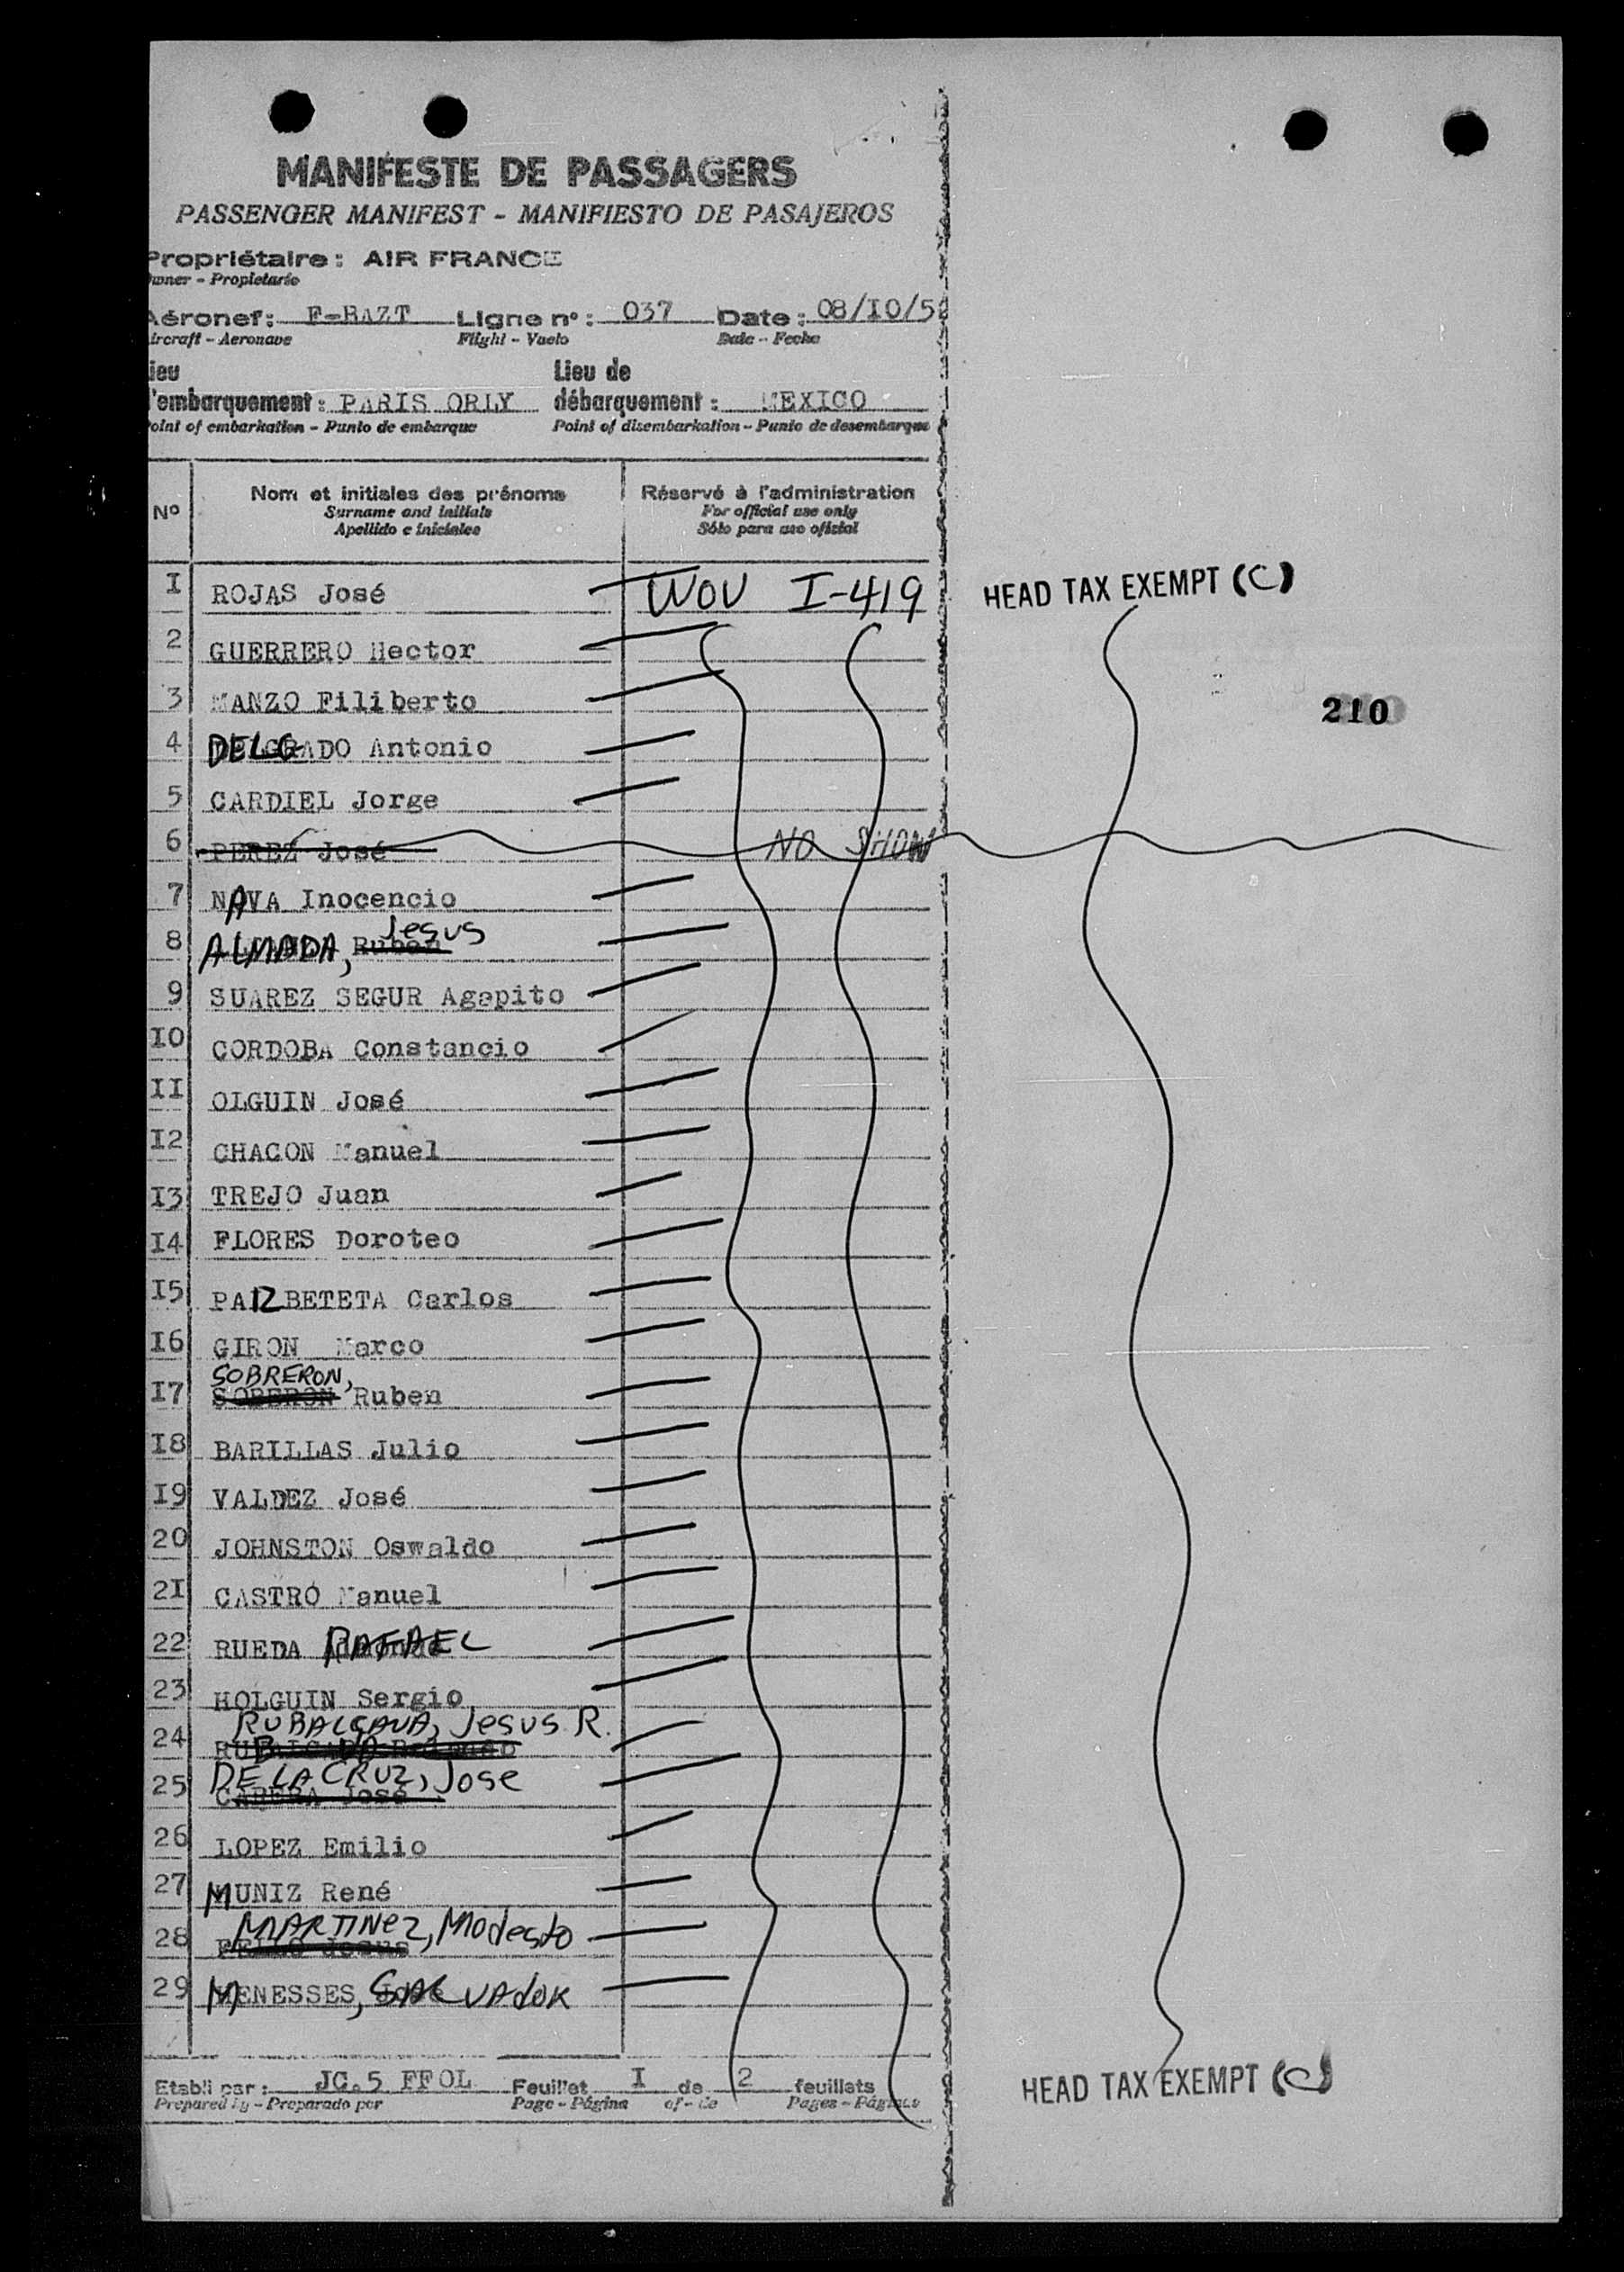 MANIFESTE DE PASSAGERS
PASSENGER MANIFEST - MANIFIESTO DE PASAJEROS
Propriétaire : AIR FRANCE
Owner - Propietario
Aéronef : F-BAZT Ligne n° : 037 Date : 08/IO/5
Aircraft - Aeronave Flight - Vuelo Date - Fecha
Lieu Lieu de
d'embarquement : PARIS ORLY débarquement : MEXICO
Point of embarkation - Punto de embarque Point of disembarkation - Punto de desembarque
N° Nom et initiales des prénoms Réservé à l'administration
Surname and initials For official use only
Apellido e iniciales Sólo para uso oficial
I ROJAS José WOV I-419 HEAD TAX EXEMPT (C)
2 GUERRERO Hector
3 MANZO Filiberto
210
4 DELGADO Antonio
5 CARDIEL Jorge
6 PEREZ José NO SHOW
7 NAVA Inocencio
8 ALMADA, Ruben Jesus
9 SUAREZ SEGUR Agapito
IO CORDOBA Constancio
II OLGUIN José
I2 CHACON Manuel
I3 TREJO Juan
I4 FLORES Doroteo
I5 PAIZ BETETA Carlos
I6 GIRON Marco
SOBRERON,
I7 SOBERON Ruben
I8 BARILLAS Julio
I9 VALDEZ José
20 JOHNSTON Oswaldo
2I CASTRO Manuel
22 RUEDA RAFAEL
23 HOLGUIN Sergio
RUBALCAVA, Jesus R.
24
DE LA CRUZ, Jose
25 CABERA José
26 LOPEZ Emilio
27 MUNIZ René
MARTINEZ, Modesto
28 Jesus
29 MENESSES, SALVAdOR
Etabli par : JC.5 FFOL Feuillet I de 2 feuillets
Prepared by - Preparado por Page - Página of - de Pages - Páginas
HEAD TAX EXEMPT (C)